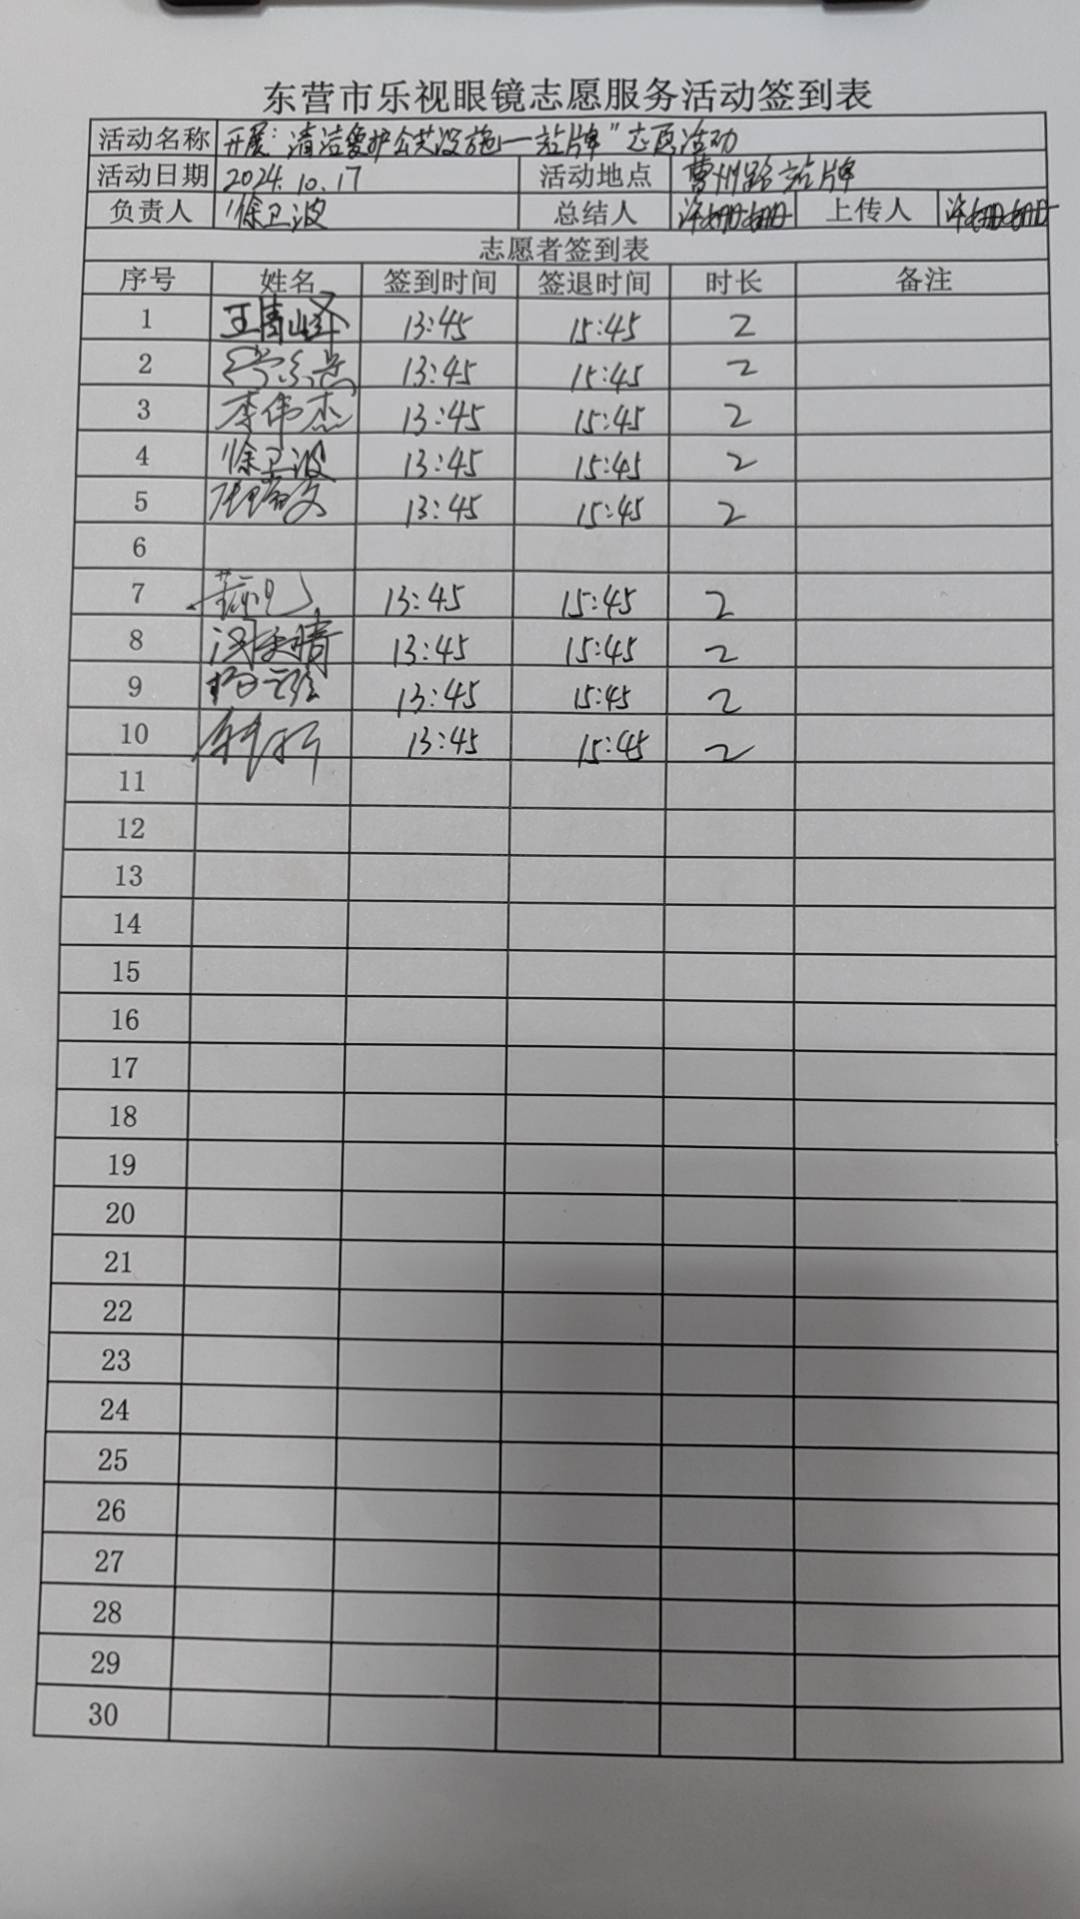 东营市乐视眼镜志愿服务活动签到表
活动名称 开展“清洁爱护公共设施—站牌”志愿活动
活动日期 2024.10.17 活动地点 曹州路站牌
负责人 徐卫波 总结人 许姗姗 上传人 许姗姗
志愿者签到表
序号 姓名 签到时间 签退时间 时长 备注
1 王青峰 13:45 15:45 2
2 13:45 15:45 2
3 李伟杰 13:45 15:45 2
4 徐卫波 13:45 15:45 2
5 13:45 15:45 2
6
7 13:45 15:45 2
8 13:45 15:45 2
9 13:45 15:45 2
10 13:45 15:45 2
11
12
13
14
15
16
17
18
19
20
21
22
23
24
25
26
27
28
29
30